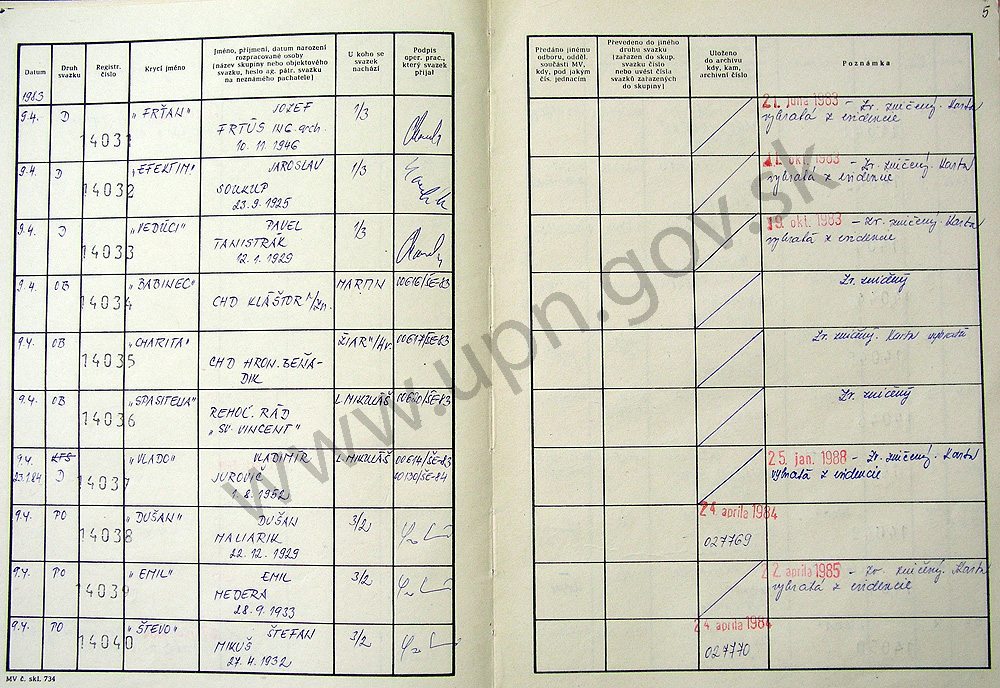 5
Datum
Druh svazku
Registr. číslo
Krycí jméno
Jméno, příjmení, datum narození rozpracované osoby (název skupiny nebo objektového svazku, heslo ag. pátr. svazku na neznámého pachatele)
U koho se svazek nachází
Podpis oper. prac., který svazek přijal
Předáno jinému odboru, odděl. součásti MV, kdy, pod jakým čís. jednacím
Převedeno do jiného druhu svazku (zařazen do skup. svazku číslo nebo uvést čísla svazků zařazených do skupiny)
Uloženo do archivu kdy, kam, archivní číslo
Poznámka
1983
9.4. D 14031 „FRŤAN" JOZEF 1/3
FRTÚS ING. arch.
10. 11. 1946
21. júna 1983 - Zv. zničený. Karta
vybratá z evidencie
9.4. D 14032 „EFEKTIM" JAROSLAV 1/3
SOUKUP
23. 9. 1925
okt. 1983 - Zv. zničený. Karta
vybratá z evidencie
9.4. D 14033 „VEDÚCI" PAVEL 1/3
TANISTRÁK
12. 1. 1929
19. okt. 1983 - Zv. zničený. Karta
vybratá z evidencie
9.4. OB 14034 „BABINEC" MARTIN 00616/ŠE-83
CHD KLÁŠTOR
Zv. zničený
9.4. OB 14035 „CHARITA" ŽIAR n/Hr. 00617/ŠE-83
CHD HRON. BEŇA-
DIK
Zv. zničený. Karta vybratá
9.4. OB 14036 „SPASITEĽIA" L. MIKULÁŠ 00620/ŠE-83
REHOĽ. RÁD
„SV. VINCENT"
Zv. zničený
9.4. KTS 14037 „VLADO" VLADIMÍR L. MIKULÁŠ 00614/ŠE-83
23.1.84 D JUROVIČ 00130/ŠE-84
1. 8. 1952
25. jan. 1988 - Zv. zničený. Karta
vybratá z evidencie
9.4. PO 14038 „DUŠAN" DUŠAN 3/2
MALIARIK
22. 12. 1929
24. apríla 1984
027769
9.4. PO 14039 „EMIL" EMIL 3/2
MEDERA
28. 9. 1933
22. apríla 1985 - Zv. zničený. Karta
vybratá z evidencie
9.4. PO 14040 „ŠTEVO" ŠTEFAN 3/2
MIKUŠ
27. 4. 1932
24. apríla 1984
027770
MV č. skl. 734
www.upn.gov.sk